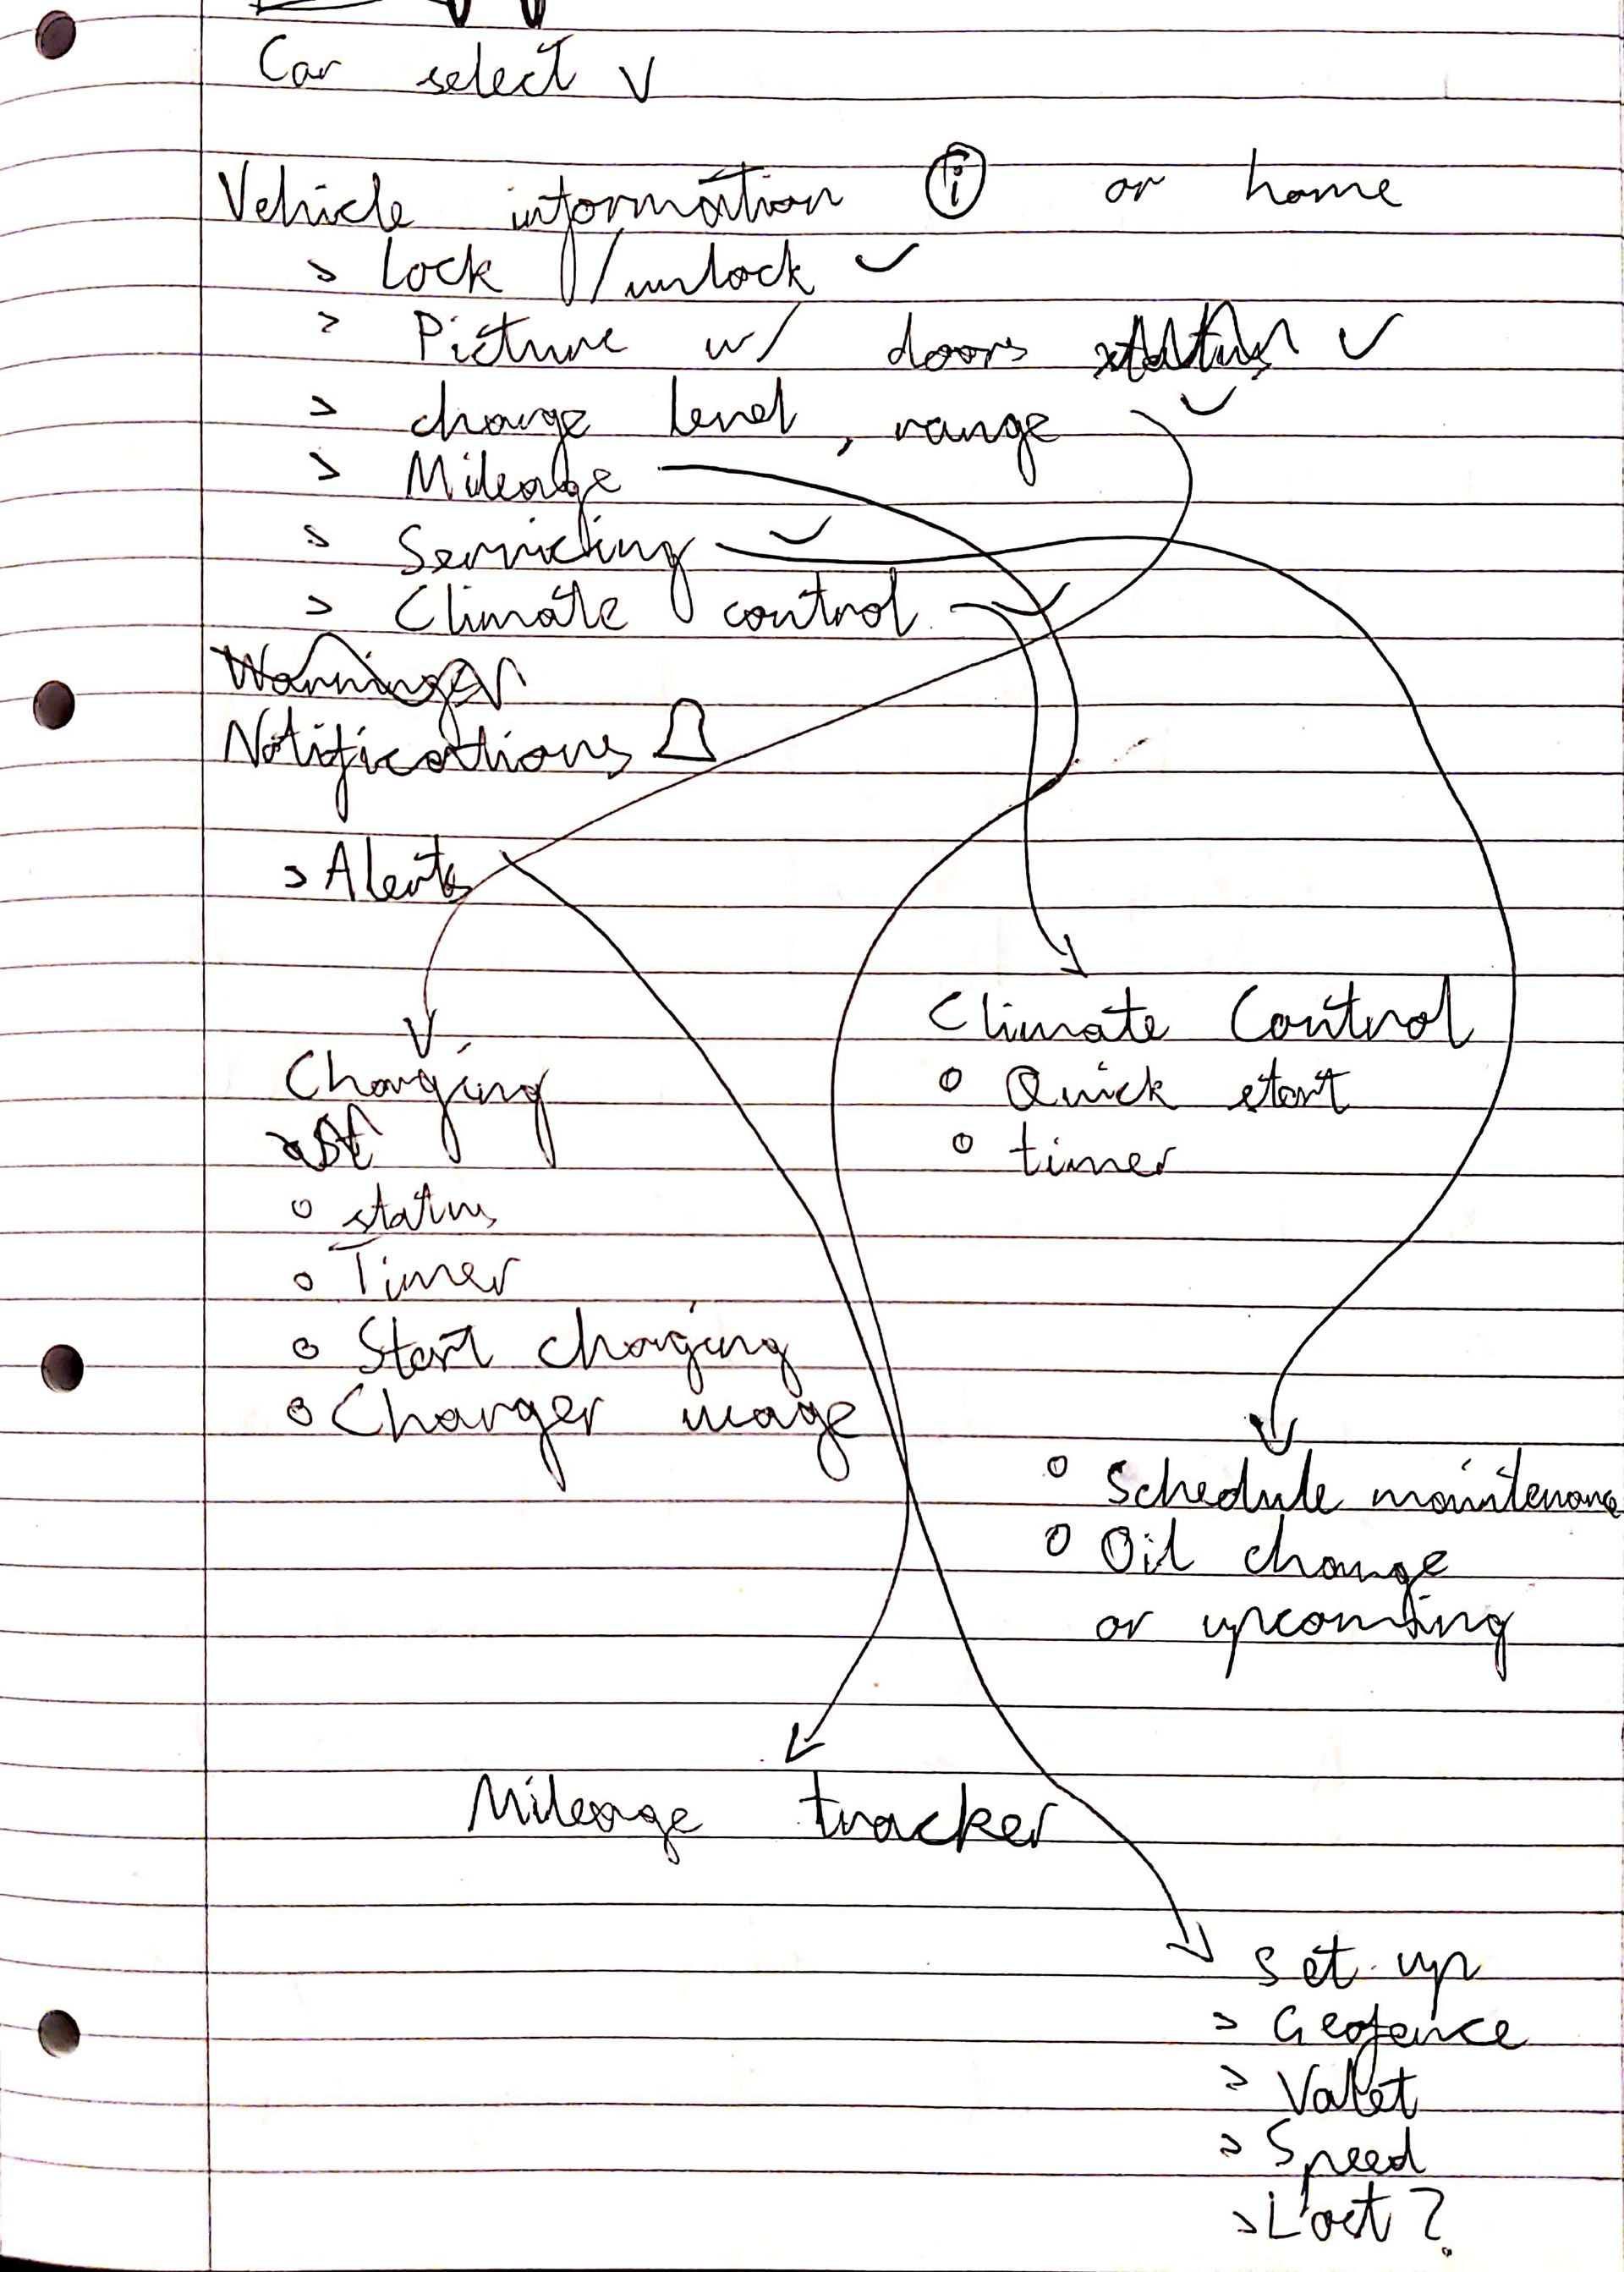 Car select V
Vehicle information i or home
> Lock / unlock ✓
> Picture w/ doors ✓
> charge level, range ✓
> Mileage
> Servicing ✓
> Climate control ✓
Warnings
Notifications
> Alerts
Climate Control
o Quick start
o timer
Charging
o status
o Timer
o Start charging
o Charger usage
o Schedule maintenance
o Oil change
or upcoming
Mileage tracker
Set up
> Geofence
> Valet
> Speed
> Lost?